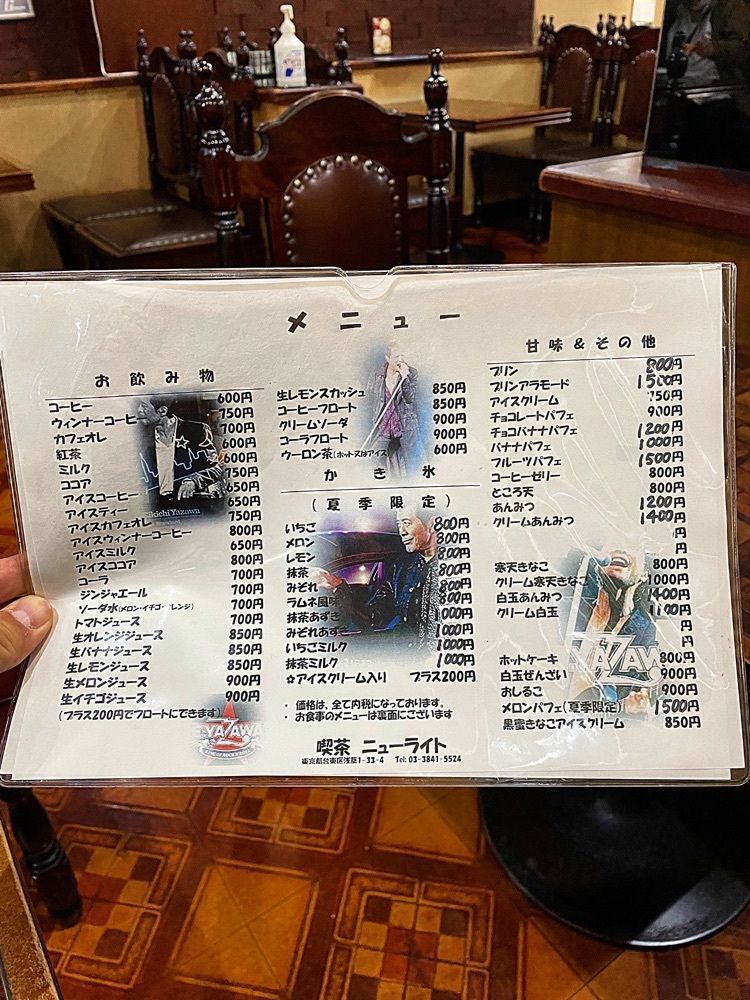 メニュー
お飲み物
コーヒー 600円
ウィンナーコーヒー 750円
カフェオレ 700円
紅茶 600円
ミルク 600円
ココア 750円
アイスコーヒー 650円
アイスティー 650円
アイスカフェオレ 750円
アイスウィンナーコーヒー 800円
アイスミルク 650円
アイスココア 800円
コーラ 700円
ジンジャエール 700円
ソーダ水(メロン・イチゴ・オレンジ) 700円
トマトジュース 700円
生オレンジジュース 850円
生バナナジュース 850円
生レモンジュース 850円
生メロンジュース 900円
生イチゴジュース 900円
(プラス200円でフロートにできます)
Eikichi Yazawa
YAZAWA
生レモンスカッシュ 850円
コーヒーフロート 850円
クリームソーダ 900円
コーラフロート 900円
ウーロン茶(ホット又はアイス) 600円
かき氷
(夏季限定)
いちご 800円
メロン 800円
レモン 800円
抹茶 800円
みぞれ 800円
ラムネ風味 800円
抹茶あずき 1000円
みぞれあずき 1000円
いちごミルク 1000円
抹茶ミルク 1000円
☆アイスクリーム入り プラス200円
・ 価格は、全て内税になっております。
・ お食事のメニューは裏面にございます
喫茶 ニューライト
東京都台東区浅草1-33-4 Tel: 03-3841-5524
甘味&その他
プリン 800円
プリンアラモード 1500円
アイスクリーム 750円
チョコレートパフェ 900円
チョコバナナパフェ 1200円
バナナパフェ 1000円
フルーツパフェ 1500円
コーヒーゼリー 800円
ところ天 800円
あんみつ 1200円
クリームあんみつ 1400円
円
円
寒天きなこ 800円
クリーム寒天きなこ 1000円
白玉あんみつ 1400円
クリーム白玉 1100円
円
円
YAZAWA
ホットケーキ 800円
白玉ぜんざい 900円
おしるこ 900円
メロンパフェ(夏季限定) 1500円
黒蜜きなこアイスクリーム 850円